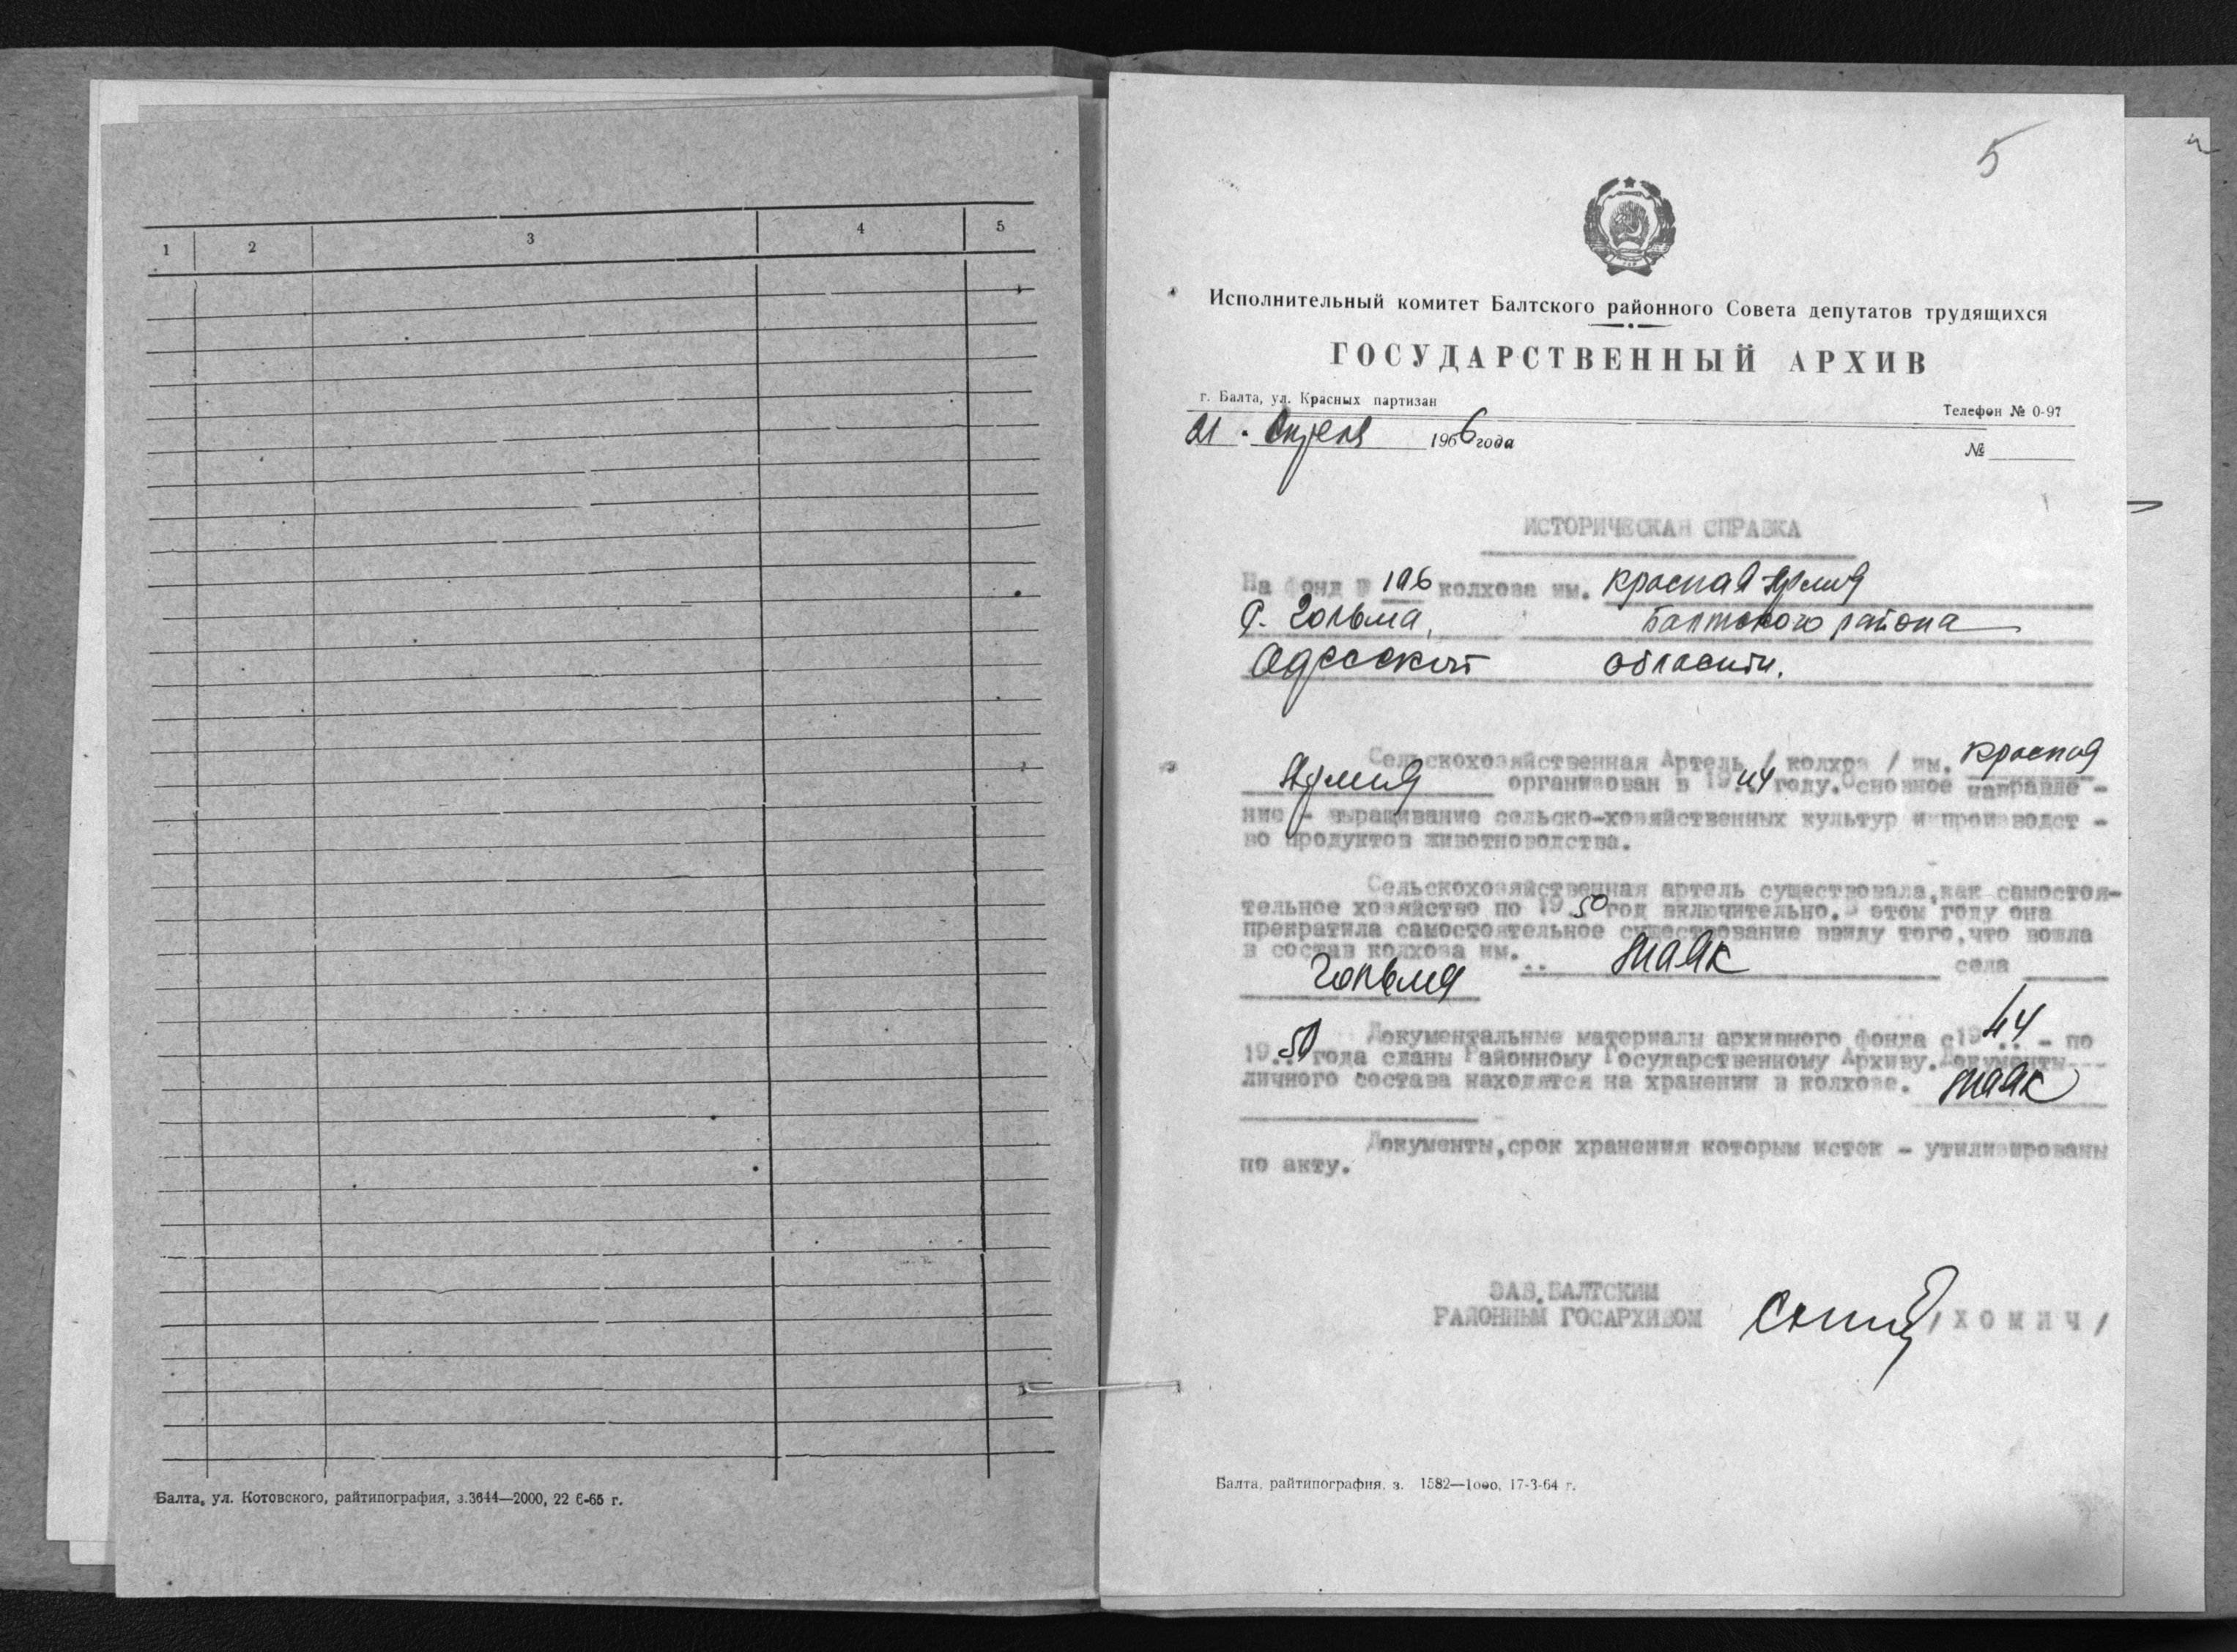 1 2 3 4 5
Балта, ул. Котовского, райтипография, з.3644—2000, 22 6-65 г.
5
Исполнительный комитет Балтского районного Совета депутатов трудящихся
ГОСУДАРСТВЕННЫЙ АРХИВ
г. Балта, ул. Красных партизан
Телефон № 0-97
21 Апреля 1966 года
№
ИСТОРИЧЕСКАЯ СПРАВКА
На фонд № 196 колхоза им. Красная Армия
с. Гольма, Балтского района
Одесской области.
Сельскохозяйственная Артель / колхоз / им. Красная
Армия организован в 1944 году. Основное направле -
ние - выращивание сельско-хозяйственных культур и производст -
во продуктов животноводства.
Сельскохозяйственная артель существовала, как самостоя-
тельное хозяйство по 1950 год включительно. В этом году она
прекратила самостоятельное существование ввиду того, что вошла
в состав колхоза им. .. Маяк села
Гольма
Документальные материалы архивного фонда с 1944 - по
1950 года сданы Районному Государственному Архиву. Документы
личного состава находятся на хранении в колхозе. Маяк
Документы, срок хранения которым истек - утилизированы
по акту.
ЗАВ. БАЛТСКИМ
РАЙОННЫМ ГОСАРХИВОМ / ХОМИЧ /
Балта, райтипография, з. 1582—1000, 17-3-64 г.